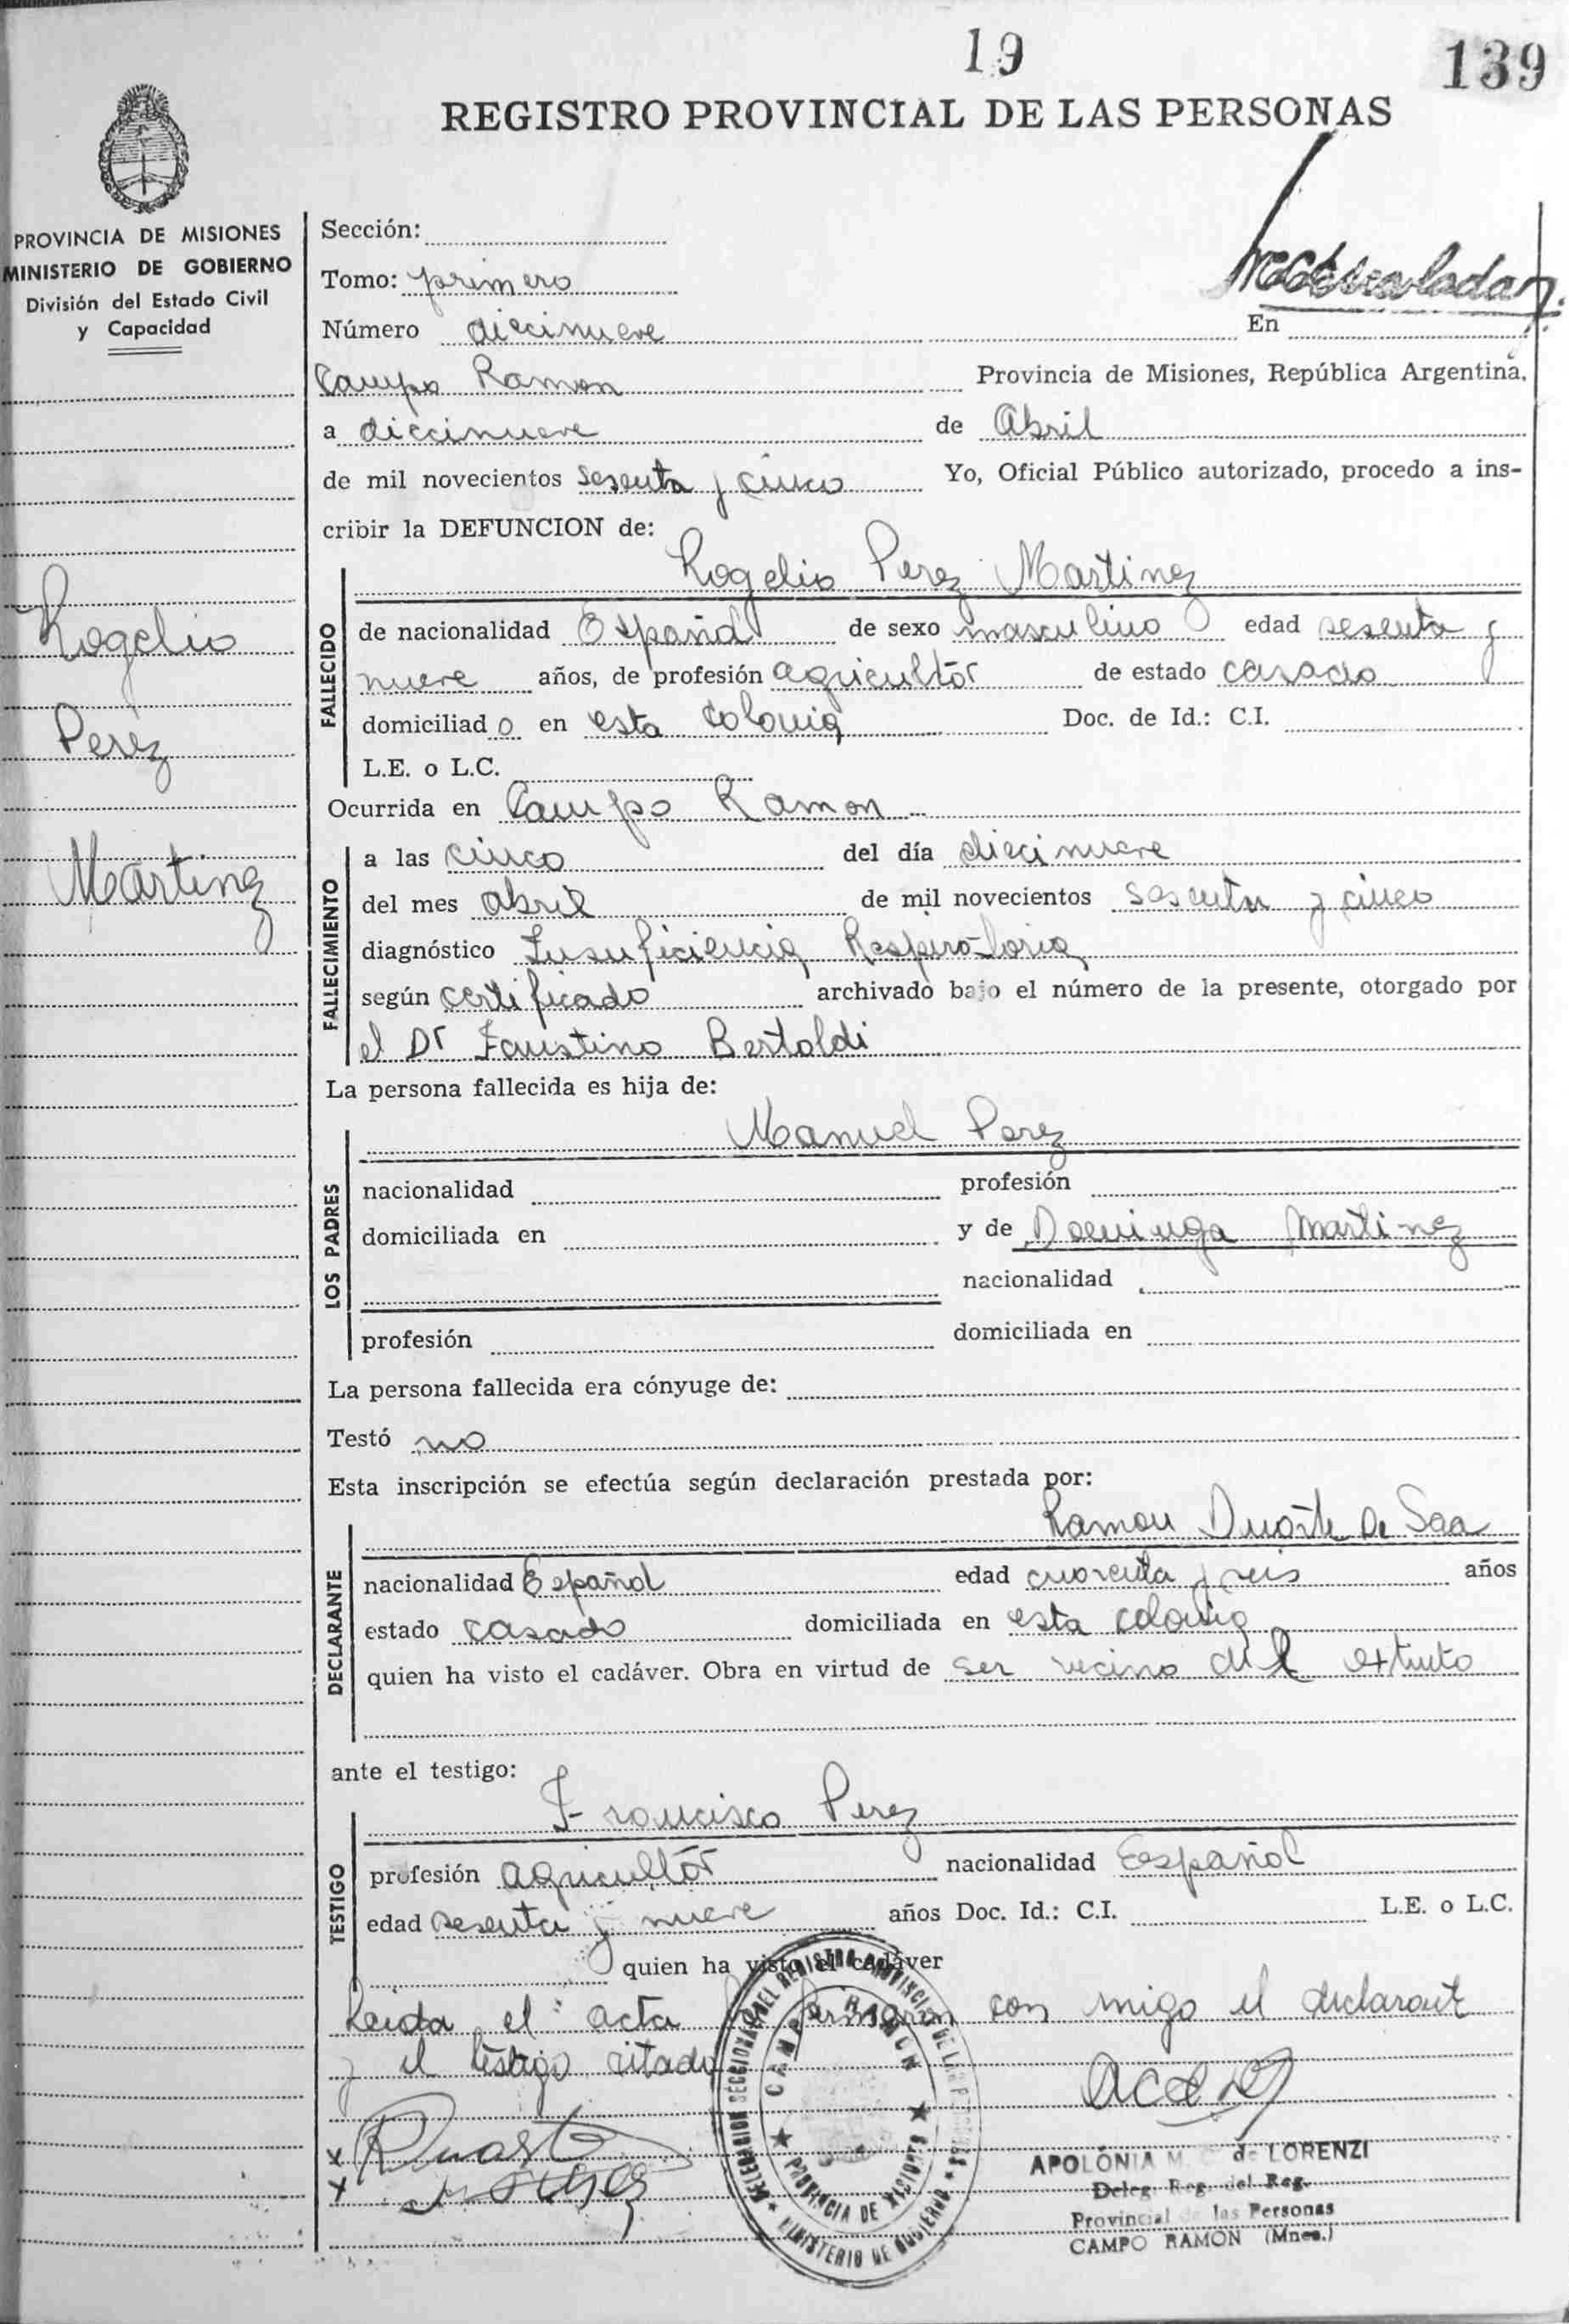 19
139
REGISTRO PROVINCIAL DE LAS PERSONAS
PROVINCIA DE MISIONES
MINISTERIO DE GOBIERNO
División del Estado Civil
y Capacidad
Rogelio
Perez
Martinez
Sección:
Tomo: primero
Número diecinueve En
Campo Ramon Provincia de Misiones, República Argentina,
a diecinueve de Abril
de mil novecientos sesenta y cinco Yo, Oficial Público autorizado, procedo a ins-
cribir la DEFUNCION de:
Rogelio Perez Martinez
FALLECIDO
de nacionalidad Español de sexo masculino edad sesenta y
nueve años, de profesión agricultor de estado casado
domiciliado en esta colonia Doc. de Id.: C.I.
L.E. o L.C.
Ocurrida en Campo Ramon
FALLECIMIENTO
a las cinco del día diecinueve
del mes abril de mil novecientos sesenta y cinco
diagnóstico Insuficiencia Respiratoria
según certificado archivado bajo el número de la presente, otorgado por
el Dr Faustino Bertoldi
La persona fallecida es hija de:
Manuel Perez
LOS PADRES
nacionalidad profesión
domiciliada en y de Dominga Martinez
nacionalidad
profesión domiciliada en
La persona fallecida era cónyuge de:
Testó no
Esta inscripción se efectúa según declaración prestada por:
Ramon Duarte De Saa
DECLARANTE
nacionalidad Español edad cuarenta y seis años
estado casado domiciliada en esta colonia
quien ha visto el cadáver. Obra en virtud de ser vecino del extinto
ante el testigo:
Francisco Perez
TESTIGO
profesión agricultor nacionalidad Español
edad sesenta y nueve años Doc. Id.: C.I. L.E. o L.C.
quien ha visto el cadáver
Leida el acta firmaron con migo el declarant
y el testigo citado
DELEGACION SECCIONAL DEL REGISTRO PROVINCIAL DE LAS PERSONAS
CAMPO RAMON
PROVINCIA DE MISIONES
MINISTERIO DE GOBIERNO
APOLONIA M. C. de LORENZI
Deleg. Reg. del Reg.
Provincial de las Personas
CAMPO RAMON (Mnes.)